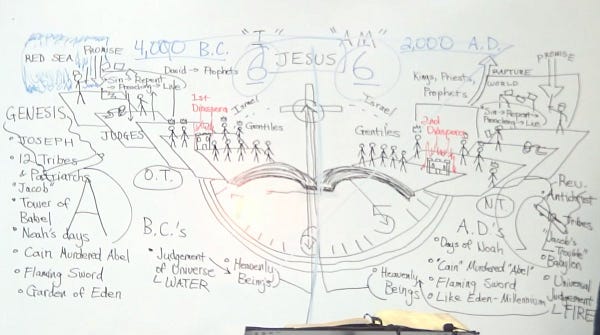 "I" "AM"
4,000 B.C. JESUS 2,000 A.D.
6 6
RED SEA
PROMISE
David → Prophets
Sin → Repent →
Preaching → Live
JUDGES
1st
Diaspora
Israel
Gentiles
GENESIS
• JOSEPH
• 12 Tribes
& Patriarchs
"Jacob"
• Tower of
Babel
• Noah's days
• Cain Murdered Abel
• Flaming Sword
• Garden of Eden
A
O.T.
B.C.'s
• Judgement
of Universe
WATER
• Heavenly
Beings
Kings, Priests,
Prophets
RAPTURE
WORLD
PROMISE
Sin → Repent →
Preaching → Live
Israel
Gentiles
2nd
Diaspora
5
6
N.T.
A.D.'s
• Days of Noah
• "Cain" Murdered "Abel"
• Flaming Sword
• Like Eden - Millennium
Heavenly
Beings
• Rev.
Antichrist
• 12 Tribes
"Jacob's
Trouble"
• Babylon
• Universal
Judgement
FIRE